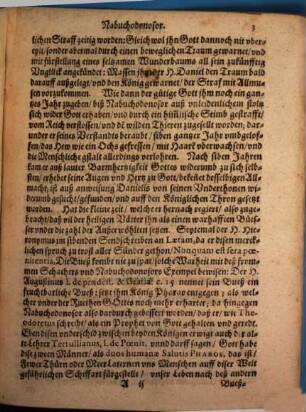 Nabuchodonosor. 3
lichen Straff zeitig worden: Gleich wol ihn Gott dannoch nit vber-
eylt / sonder abermal durch einen beweglichen Traum gewarnet / vnd
mit fürstellung eines selzamen Wunderbaums all sein zukünfftig
Vnglück angekündet: Massen H. Daniel den Traum bald
darauff außgelegt / vnd den König gewarnet / der Straf mit Allmu-
sen vorzukommen. Wie dann der gütige Gott ihm noch ein gan-
tzes Jahr zugeben / biß Nabuchodonosor auß vnleidenlichem stoltz
sich wider Gott erhaben / vnd durch ein himlische Stimb gestrafft
vom Reich verstossen / vnd den wilden Thieren zugesellt worden; dar-
under er seines Verstandts beraubt / siben gantzer Jahr vmbgeloffen
/ das Hew wie ein Ochs gefressen / mit Haarn vberwachsen / vnd
die Menschliche gstalt allerdings verlohren. Nach siben Jahren
kam er auß lauter Barmhertzigkeit Gottes widerumb zu sich selb-
sten / erhebet seine Augen vnd Hertz zu Gott / bekehret selbiger All-
macht / ist auß anweisung Danielis von seinen Vnderthonen wi-
derumb gesucht / gefunden / vnd auff den Königlichen Thron gesetzt
worden. Hat die kleine zeit / welche er hernach regiert / also zuge-
bracht / daß vil der heiligen Vätter ihn als einen warhafften Büs-
ser vnder die zahl der Außerwöhlten setzen. Septimum der H. Hie-
ronymus im sibenden Sendschreiben an Lætam, da er disen merck-
lichen spruch zu trost aller Sünder gethon / Nunquam est sera pœ-
nitentia, Die Buß komme nie zu spat / solche Warheit mit deß from-
men Schachers vnd Nabuchodonosors Exempel bewisen: Der H.
Augustinus l. de prædest. & Gratia c. 15 nennet sein Bueß ein
fruchtbarliche Bueß: setzt ihm König Pharao entgegen / als wel-
cher vnder der Ruethen Gottes noch mehr erhartet; da hingegen
Nabuchodonosor also dardurch gebessert worden / daß er / wie The-
odoretus schreibt / als ein Prophet von Gott gehalten vnd geredt.
Eben disen vnderschid zwischen beyden Königen erwigt auch der al-
te Lehrer Tertullianus, l. de Pœnit. vnnd darff sagen / Gott habe
dise zween Männer / als duos humanæ Salutis PHAROS, das ist /
Fewer Thürn oder Meer Laternen vns Menschen auff diser Welt
gefährlichen Scheffart fürgestellt / vnser Leben nach deß andern
A ij Bueß-